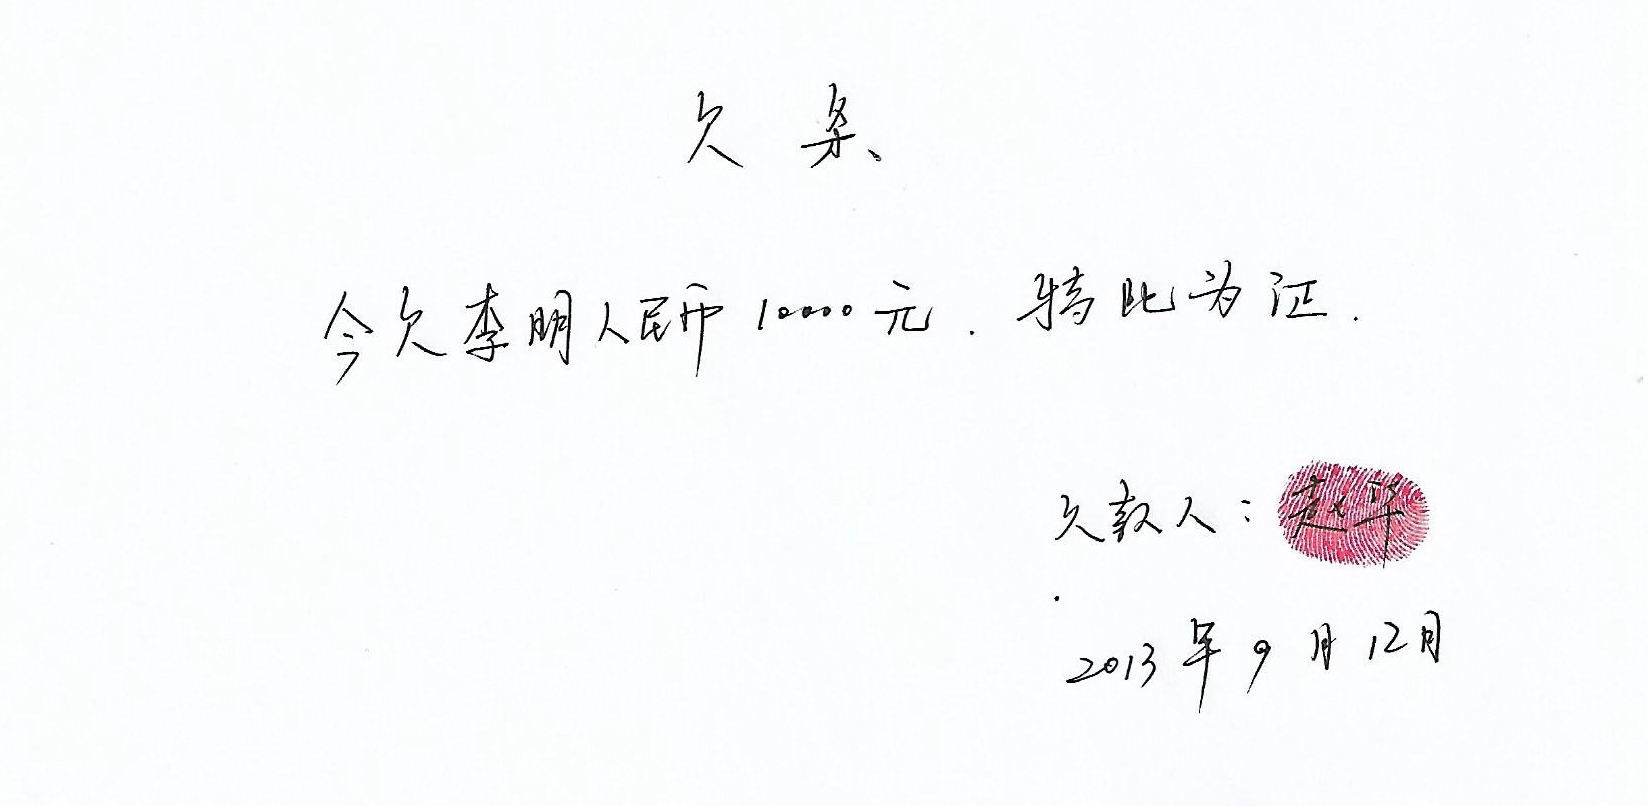 欠条
今欠李明人民币10000元.特此为证.
欠款人:赵华
2013年9月12日